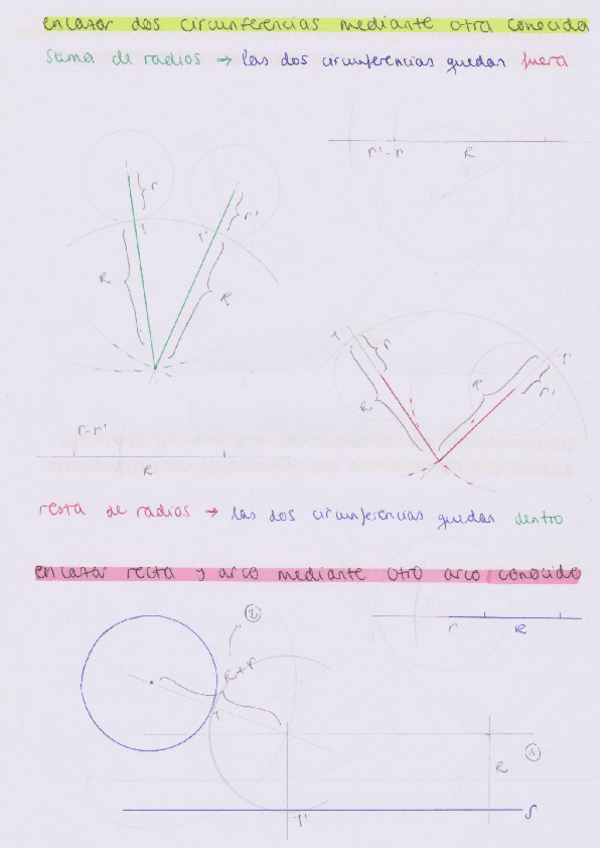 enlazar dos circunferencias mediante otra conocida
suma de radios → las dos circunferencias quedan fuera
r'-r R
r
r'
T
T'
R
R
T
r
T'
R
r'
R
r-r'
R
resta de radios → las dos circunferencias quedan dentro
enlazar recta y arco mediante otro arco conocido
2
r R
R+r
T
1
R
T'
s